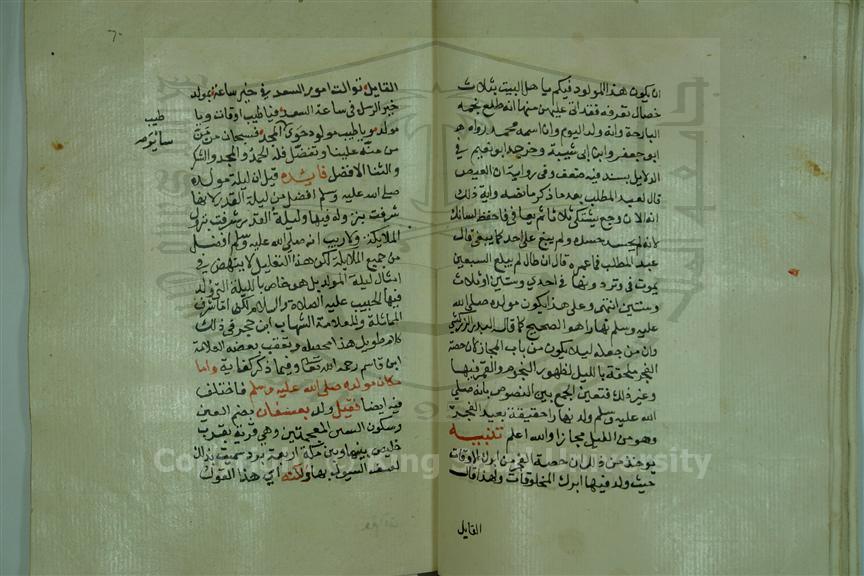 ان يكون هذا المولود فيكم يا اهل البيت بثلاث
خصال نعرفه فقد اتى عليهن منها انه طلع نجمه
البارحة وانه ولد اليوم وان اسمه محمد رواه
ابو جعفر وابن ابى شيبة وخرجه ابو نعيم في
الدلايل بسند فيه ضعف وفى رواية ان العيص
قال لعبد المطلب بعد ما ذكر ما نفسه واية ذلك
انه الان وجع يشتكى ثلاثا ثم يعافى فاحفظ لسانك
لانه لم يحسد حسده ولم يبغ على احد كما يبغى قال
عبد المطلب فما عمره قال ان طال لم يبلغ السبعين
يموت في وتر دونها في احدى وستين او ثلاث
وستين انتهى وعلى هذا يكون مولده صلى الله
عليه وسلم نهارا هو الصحيح كما قاله البدر الزركشي
وان من جعله ليلا يكون من باب المجاز كان حصة
الفجر ملحقة بالليل لظهور النجوم والقمر فيها
وغير ذلك فتعين الجمع بين النصوص بانه صلى
الله عليه وسلم ولد نهارا حقيقة بعيد الفجر
وهو من الليل مجازا والله اعلم تنبيه
يوخذ من ذلك ان حصة الفجر من ابرك الاوقات
حيث ولد فيها ابرك المخلوقات ولهذا قال
القايل
القايل توالت امور السعد في خير ساعة بمولد
خير الرسل في ساعة السعد فيا طيب اوقات ويا
مولد ويا طيب مولود حوى المجد فسبحان من
من منه علينا وتفضل فله الحمد والمجد والشكر
والثنا الافضل فايدة قيل ان ليلة مولده
صلى الله عليه وسلم افضل من ليلة القدر لانها
شرفت بنزوله فيها وليلة القدر شرفت بنزول
الملايكة ولا ريب انه صلى الله عليه وسلم افضل
من جميع الملايكة لكن هذا التعليل لا ينهض في
امثال ليلة المولد بل هو خاص بالليلة التى ولد
فيها الحبيب عليه الصلاة والسلام لكن
المماثلة وللعلامة الشهاب ابن حجر فى ذلك
كلام طويل هذا محصله وتعقب بعضه العلامة
ابن قاسم رحمه الله تعا وفيما ذكر كفاية واما
مكان مولده صلى الله عليه وسلم فاختلف
فيه ايضا فقيل ولد بعسفان بضم العين
وسكون السين المعجمتين وهي قرية بقرب
خليص بينها وبين مكة اربعة برد سميت بذلك
لعسف السيول بها ولكنه اي هذا القول
طيب
Copyright © King Saud University